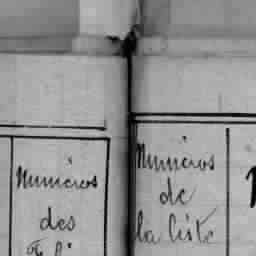 Numéros
des
Numéros
de
la liste